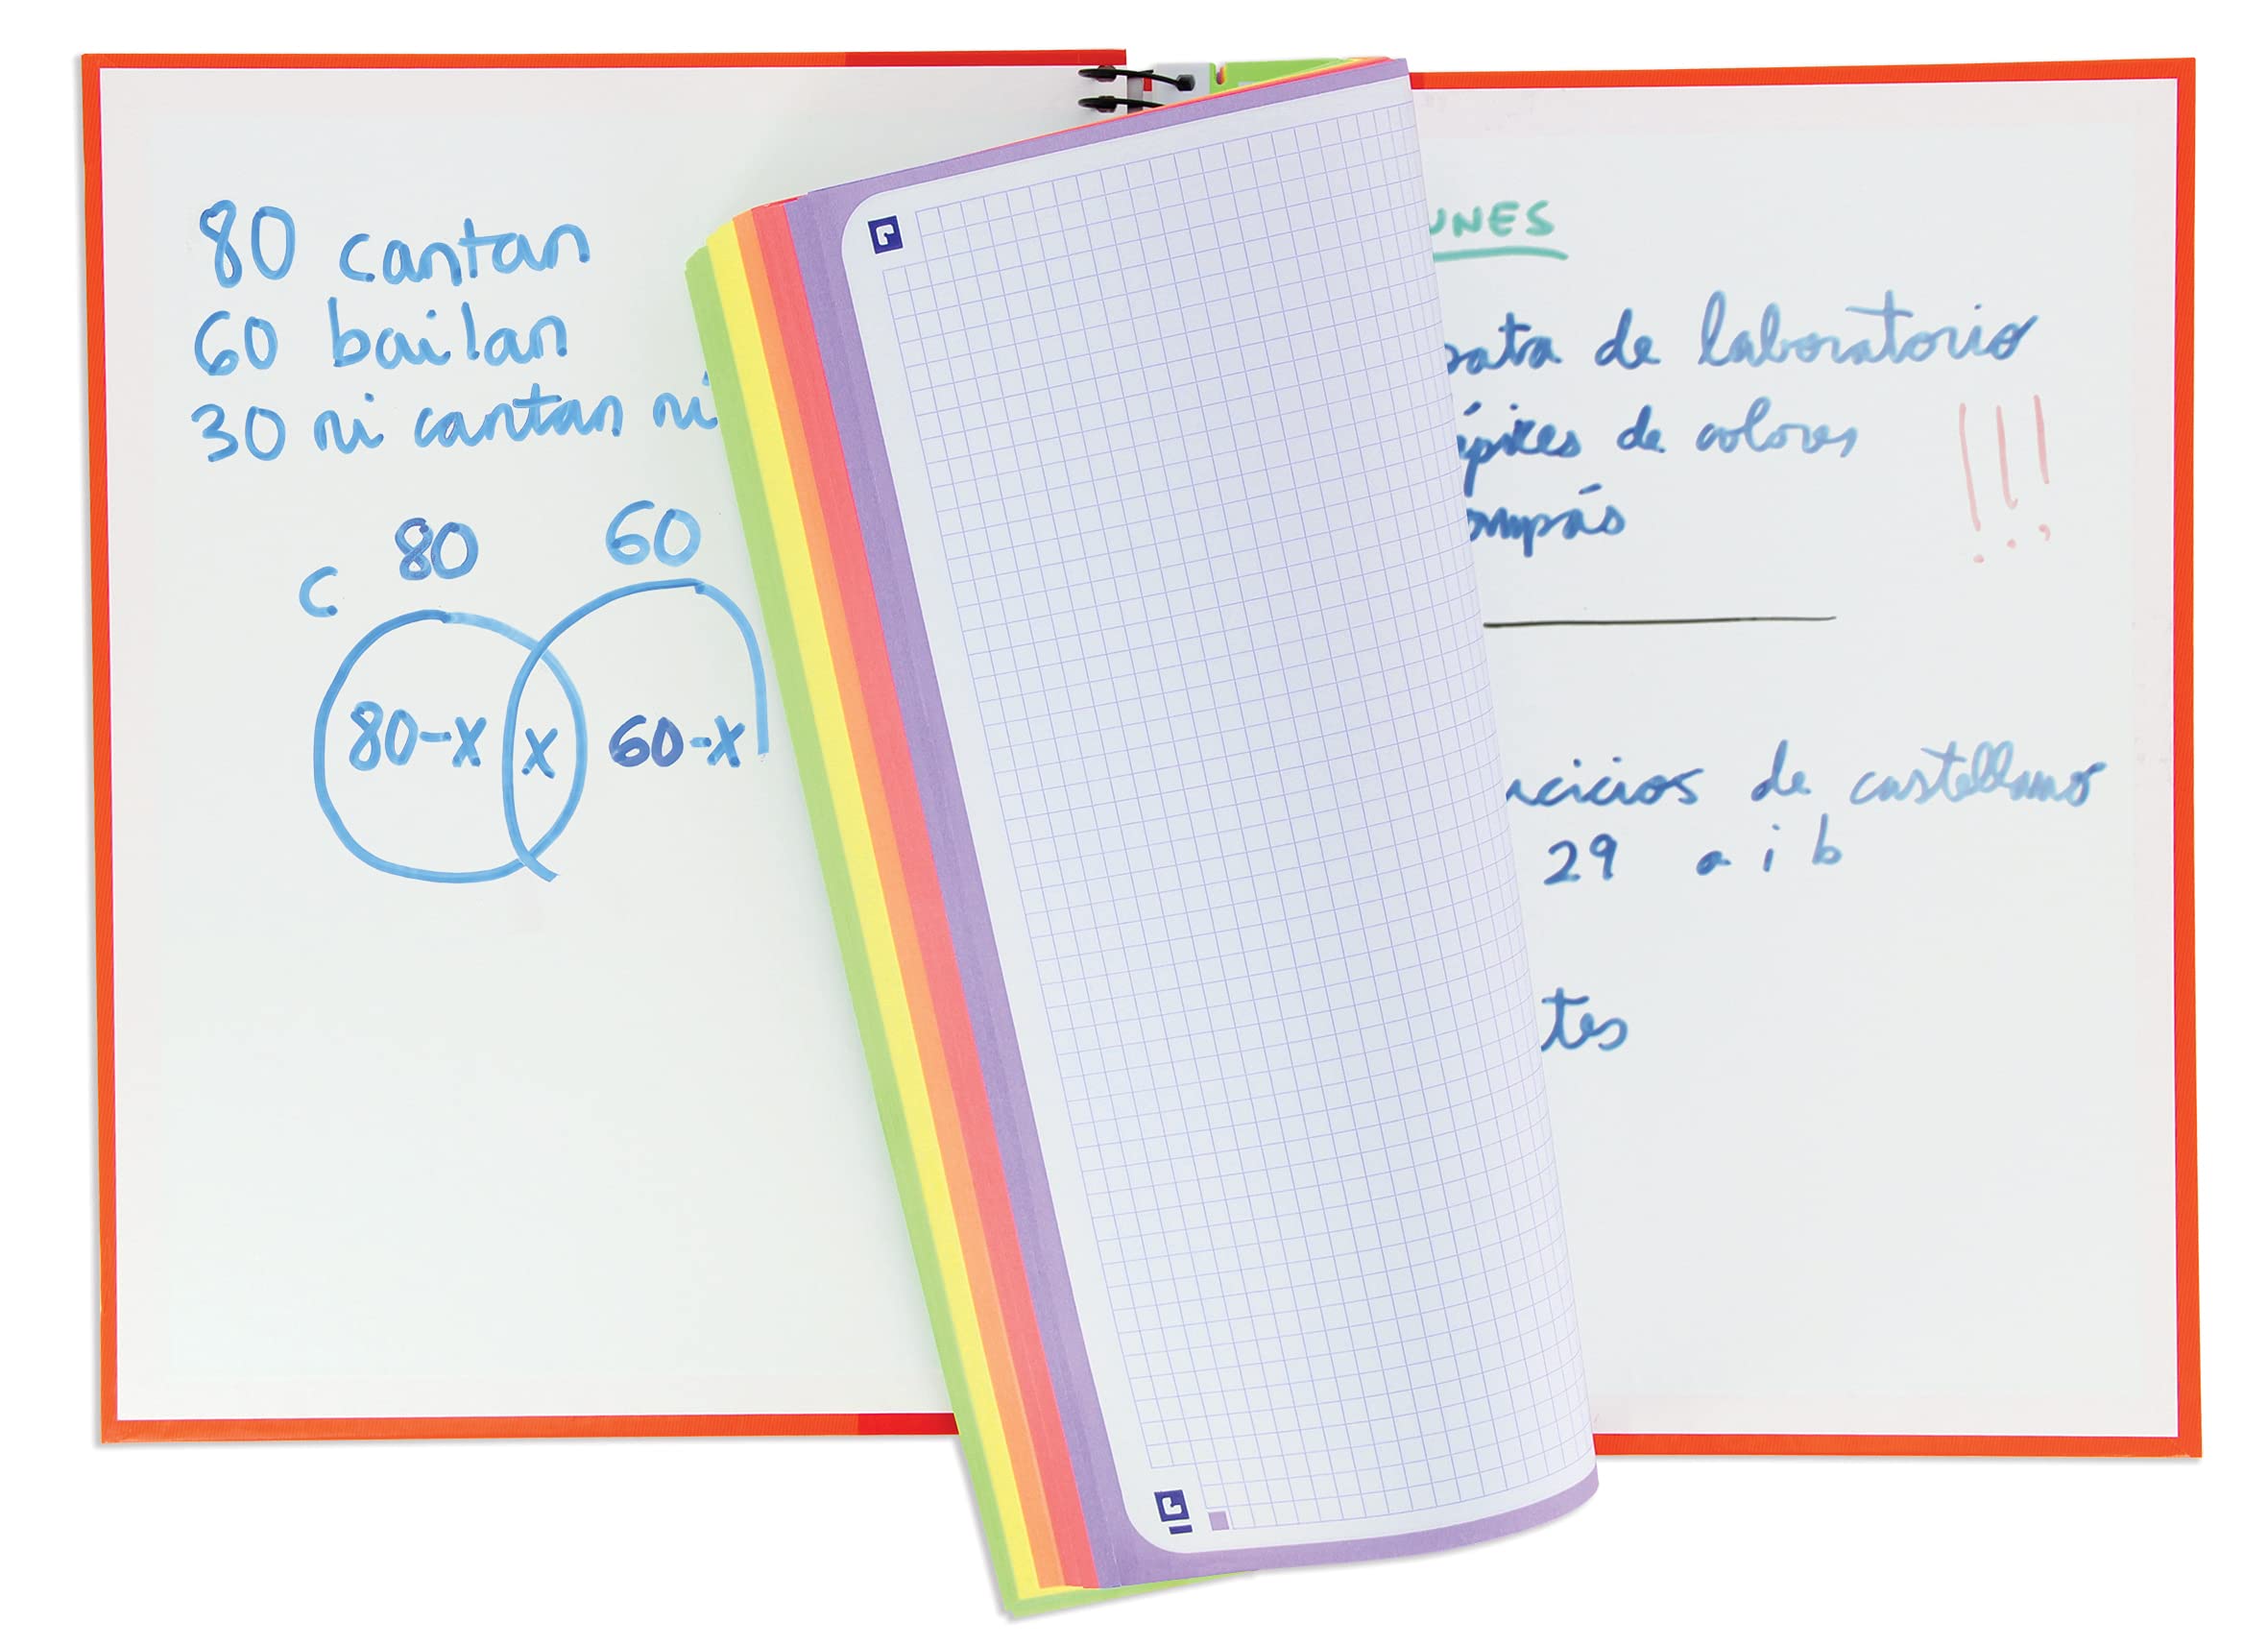 80 cantan
60 bailan
30 ni cantan ni
80 60
C
80-x x 60-x
UNES
de laboratorio
de colores
!!!
ompás
de castellano
29 a i b
tes